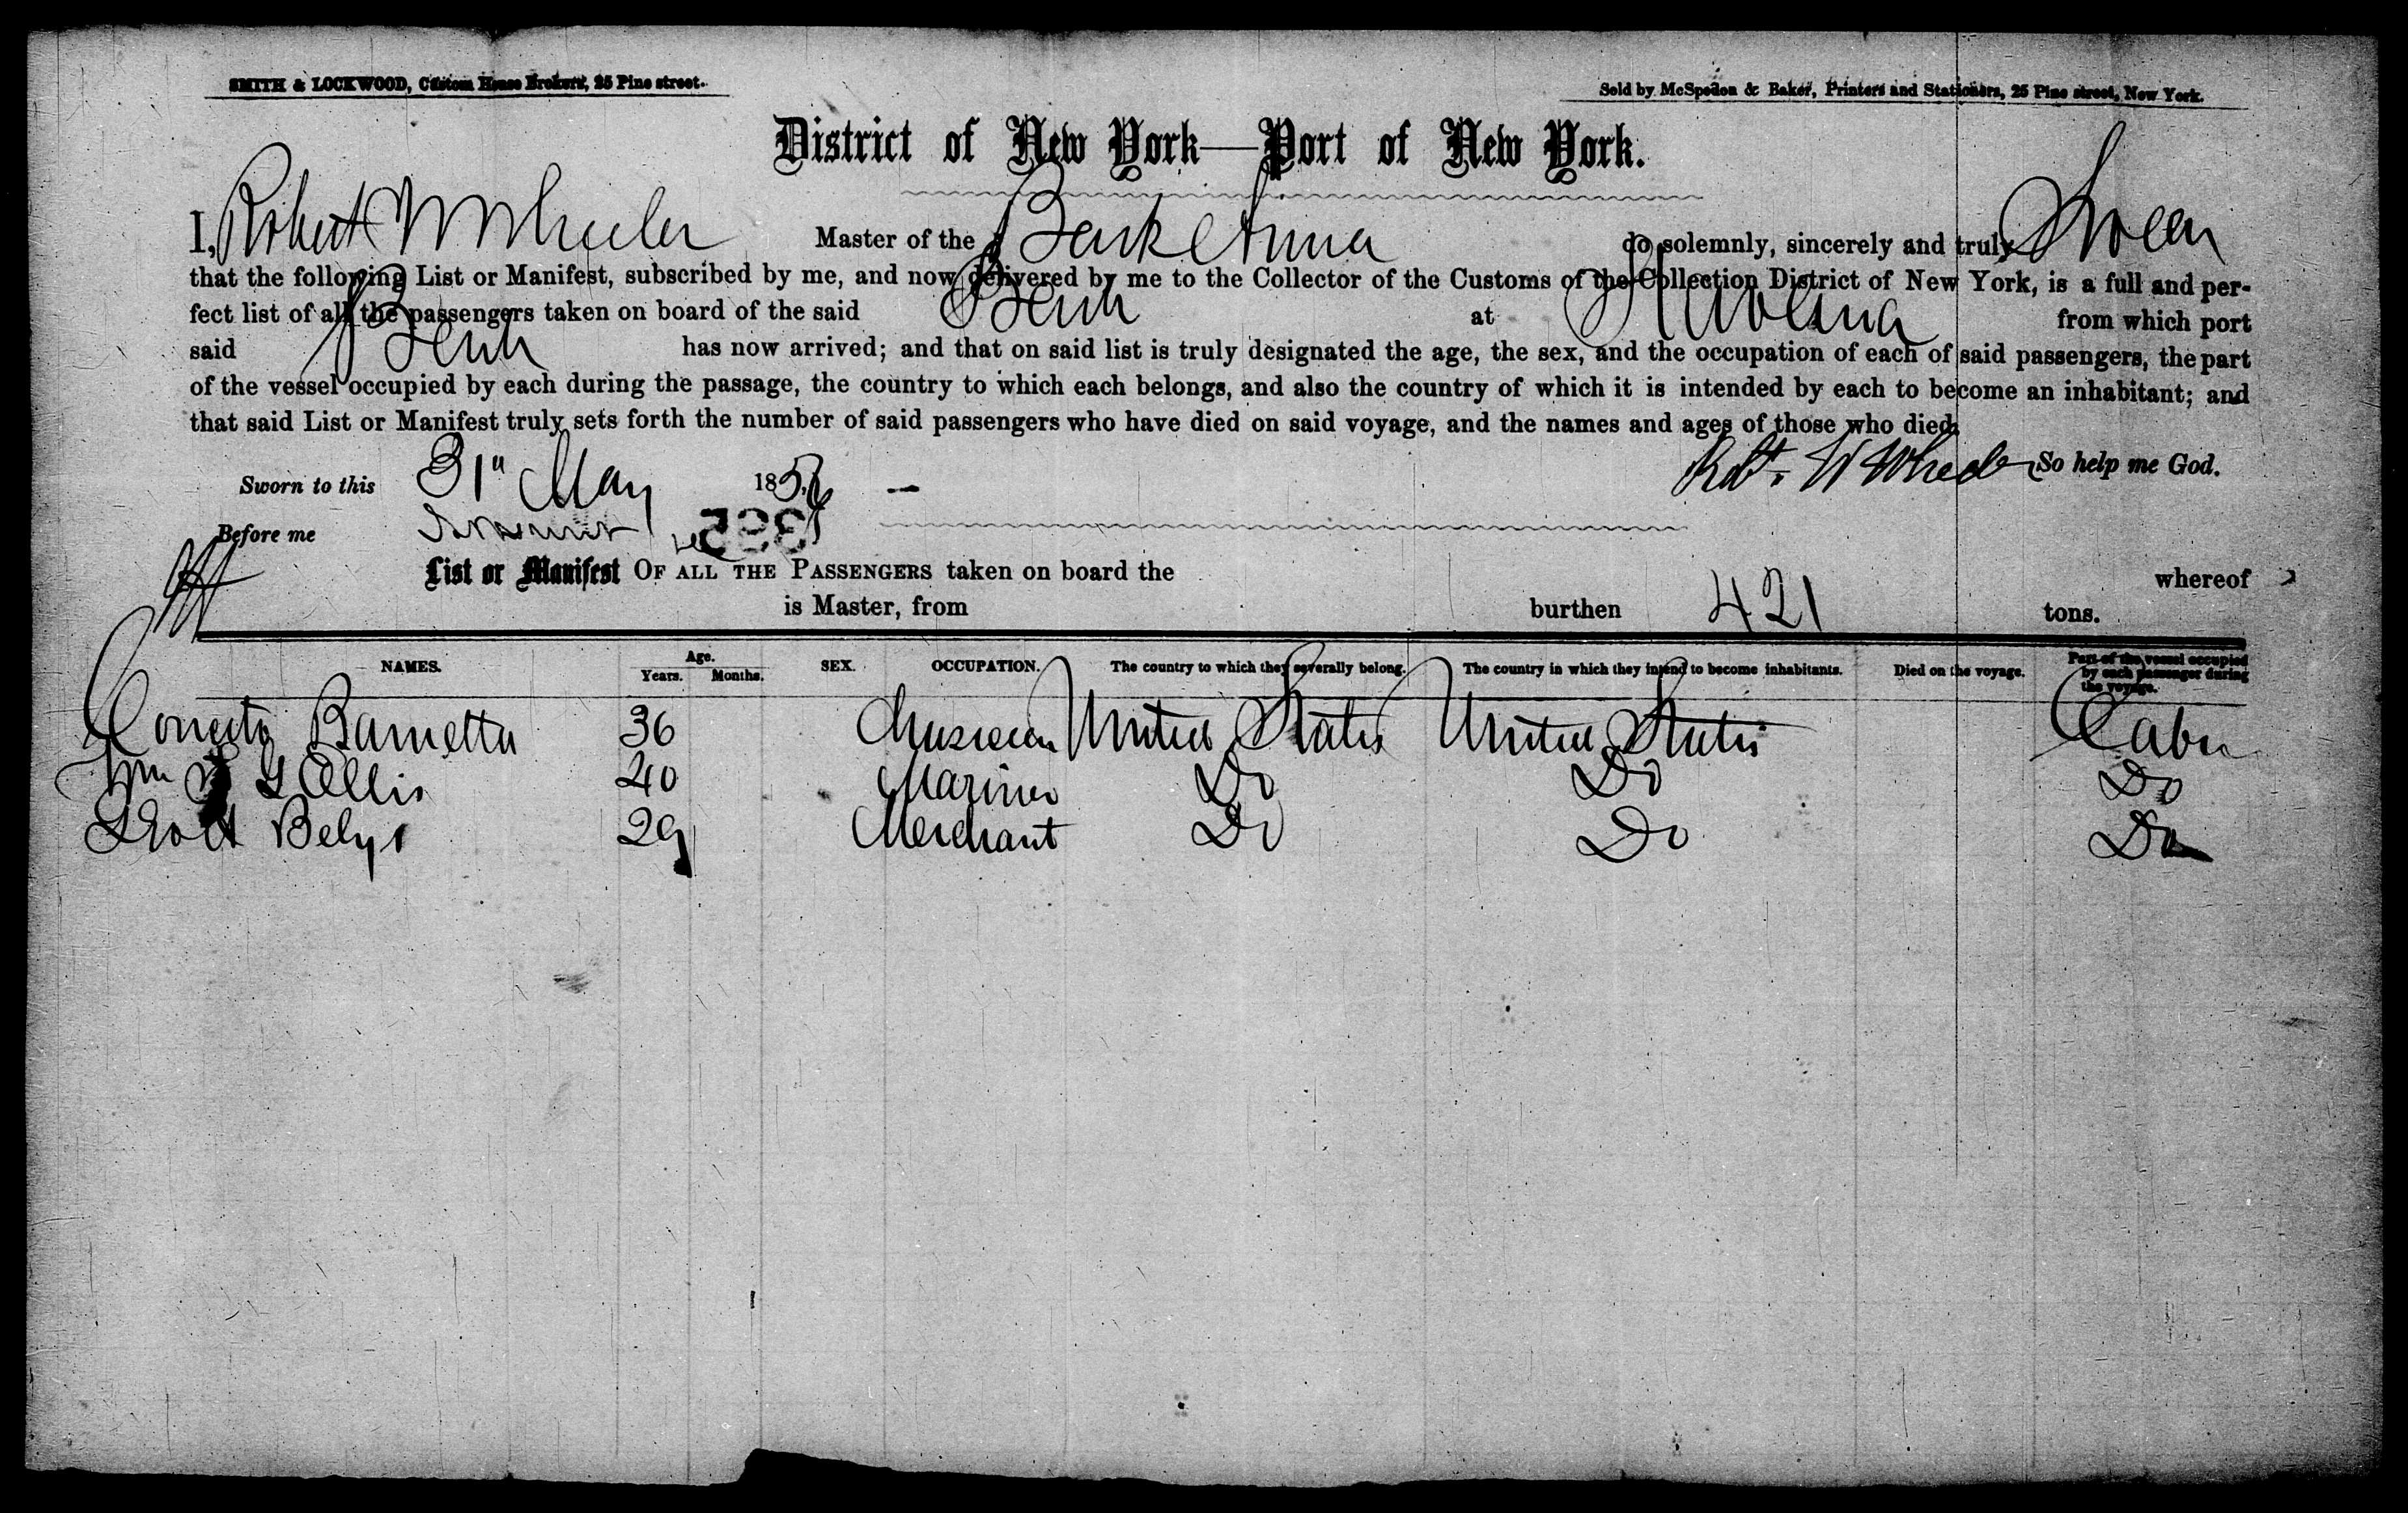 SMITH & LOCKWOOD, Custom House Brokers, 25 Pine street.
Sold by McSpedon & Baker, Printers and Stationers, 25 Pine street, New York.
District of New York—Port of New York.
I, Robert W Wheeler Master of the Bark Anna do solemnly, sincerely and truly Swear
that the following List or Manifest, subscribed by me, and now delivered by me to the Collector of the Customs of the Collection District of New York, is a full and per-
fect list of all the passengers taken on board of the said Bark at Havana from which port
said Bark has now arrived; and that on said list is truly designated the age, the sex, and the occupation of each of said passengers, the part
of the vessel occupied by each during the passage, the country to which each belongs, and also the country of which it is intended by each to become an inhabitant; and
that said List or Manifest truly sets forth the number of said passengers who have died on said voyage, and the names and ages of those who died.
Robt. W Wheeler So help me God.
Sworn to this 31" May 185
Before me
List or Manifest OF ALL THE PASSENGERS taken on board the whereof
is Master, from burthen 421 tons.
NAMES. Age. Years. Months. SEX. OCCUPATION. The country to which they severally belong. The country in which they intend to become inhabitants. Died on the voyage. Part of the vessel occupied by each passenger during the voyage.
Barnetta 36 Musician United States United States Cabin
Wm Ellis 40 Mariner Do Do Do
Belys 29 Merchant Do Do Do